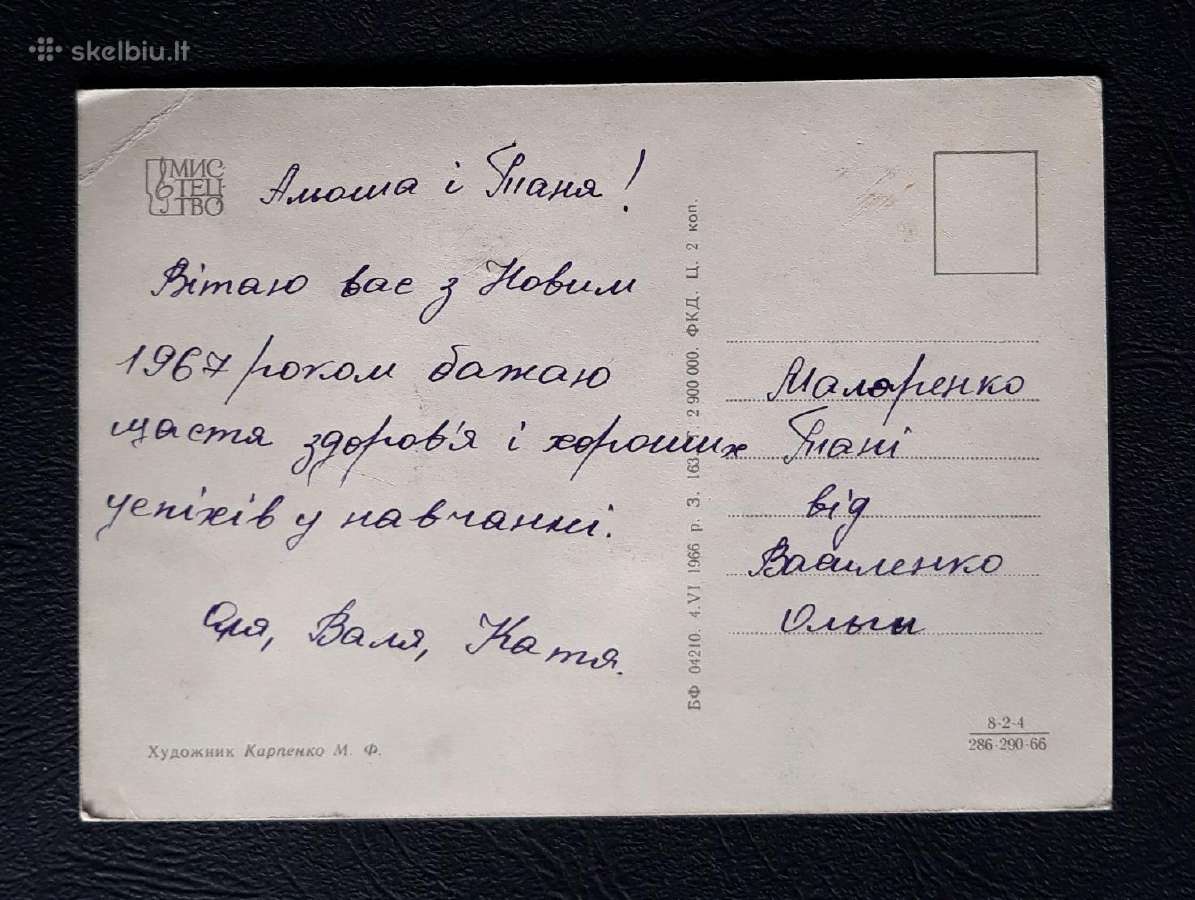 skelbiu.lt
МИС
ТЕЦ
ТВО
Альоша і Таня!
Вітаю вас з Новим
1967 роком бажаю
щастя здоров'я і хороших
успіхів у навчанні.
Оля, Валя, Катя.
БФ 04210. 4.VI 1966 р. З. 163 2 900 000. ФКД. Ц. 2 коп.
Маляренко
Тані
від
Василенко
Ольги
Художник Карпенко М. Ф.
8-2-4
286·290·66